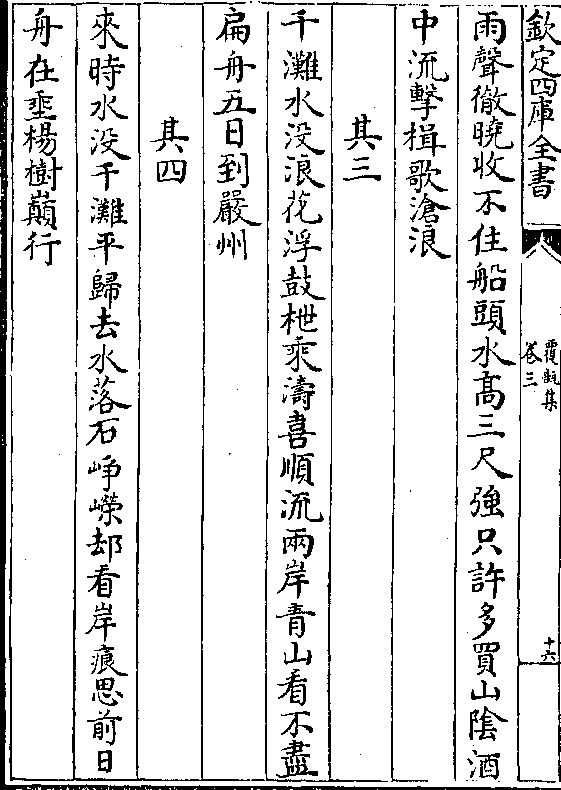 欽定四庫全書
覆瓿集
卷三
十六
雨聲徹曉收不住船頭水髙三尺強只許多買山隂酒
中流擊楫歌滄浪
其三
千灘水没浪花浮鼓枻乘濤喜順流兩岸青山看不盡
扁舟五日到嚴州
其四
來時水没千灘平歸去水落石崢嶸却看岸痕思前日
舟在埀楊樹巔行